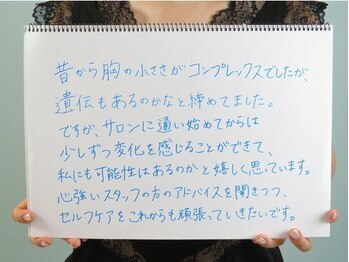 昔から胸の小ささがコンプレックスでしたが、
遺伝もあるのかなと締めてました。
ですが、サロンに通い始めてからは
少しずつ変化を感じることができて、
私にも可能性はあるのかと嬉しく思っています。
心強いスタッフの方のアドバイスを聞きつつ、
セルフケアをこれからも頑張っていきたいです。